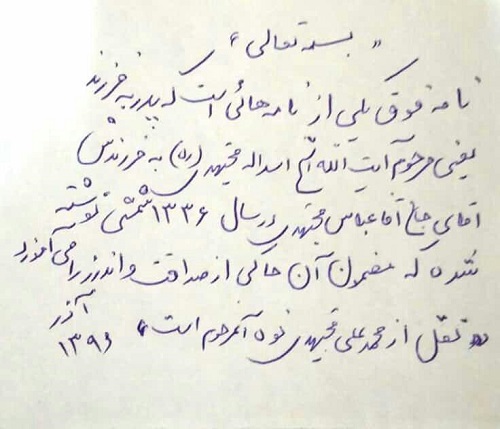 « بسمه تعالی »
نامه فوق یکی از نامه هائی است که پدر به فرزند
یعنی مرحوم آیت الله اسداله مجتهدی (ره) به فرزندش
آقای حاج آقا عباس مجتهدی در سال ۱۳۳۶ شمسی نوشته
شده که مضمون آن حاکی از صداقت و اندرز را می آموزد
« نقل از محمد علی مجتهدی نوه آنمرحوم است » آذر
۱۳۹۶